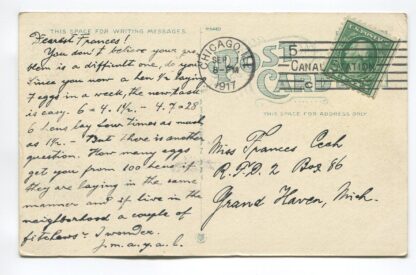 THIS SPACE FOR WRITING MESSAGES
Dearest Frances!
You don't believe your pro-
blem is a difficult one, do you?
Since you now a hen 1½ laying
7 eggs in a week, the new task
is easy. 6 ÷ 4. 1½. - 4.7 = 28
6 hens lay four times as much
as 1½. - But there is another
question. How many eggs
get you from 100 hens if
they are laying in the same
manner and if live in the
neighborhood a couple of
fitchews? I wonder.
J.m.a.y.a.l.
CHICAGO, ILL.
SEP
8-PM
1917
CANAL STATION
THIS SPACE FOR ADDRESS ONLY
Miss Frances
R.F.D. 2 Box 86
Grand Haven, Mich.